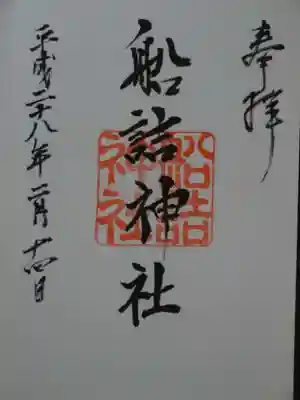 奉拝
船詰神社
船詰
神社
平成二十八年二月十四日